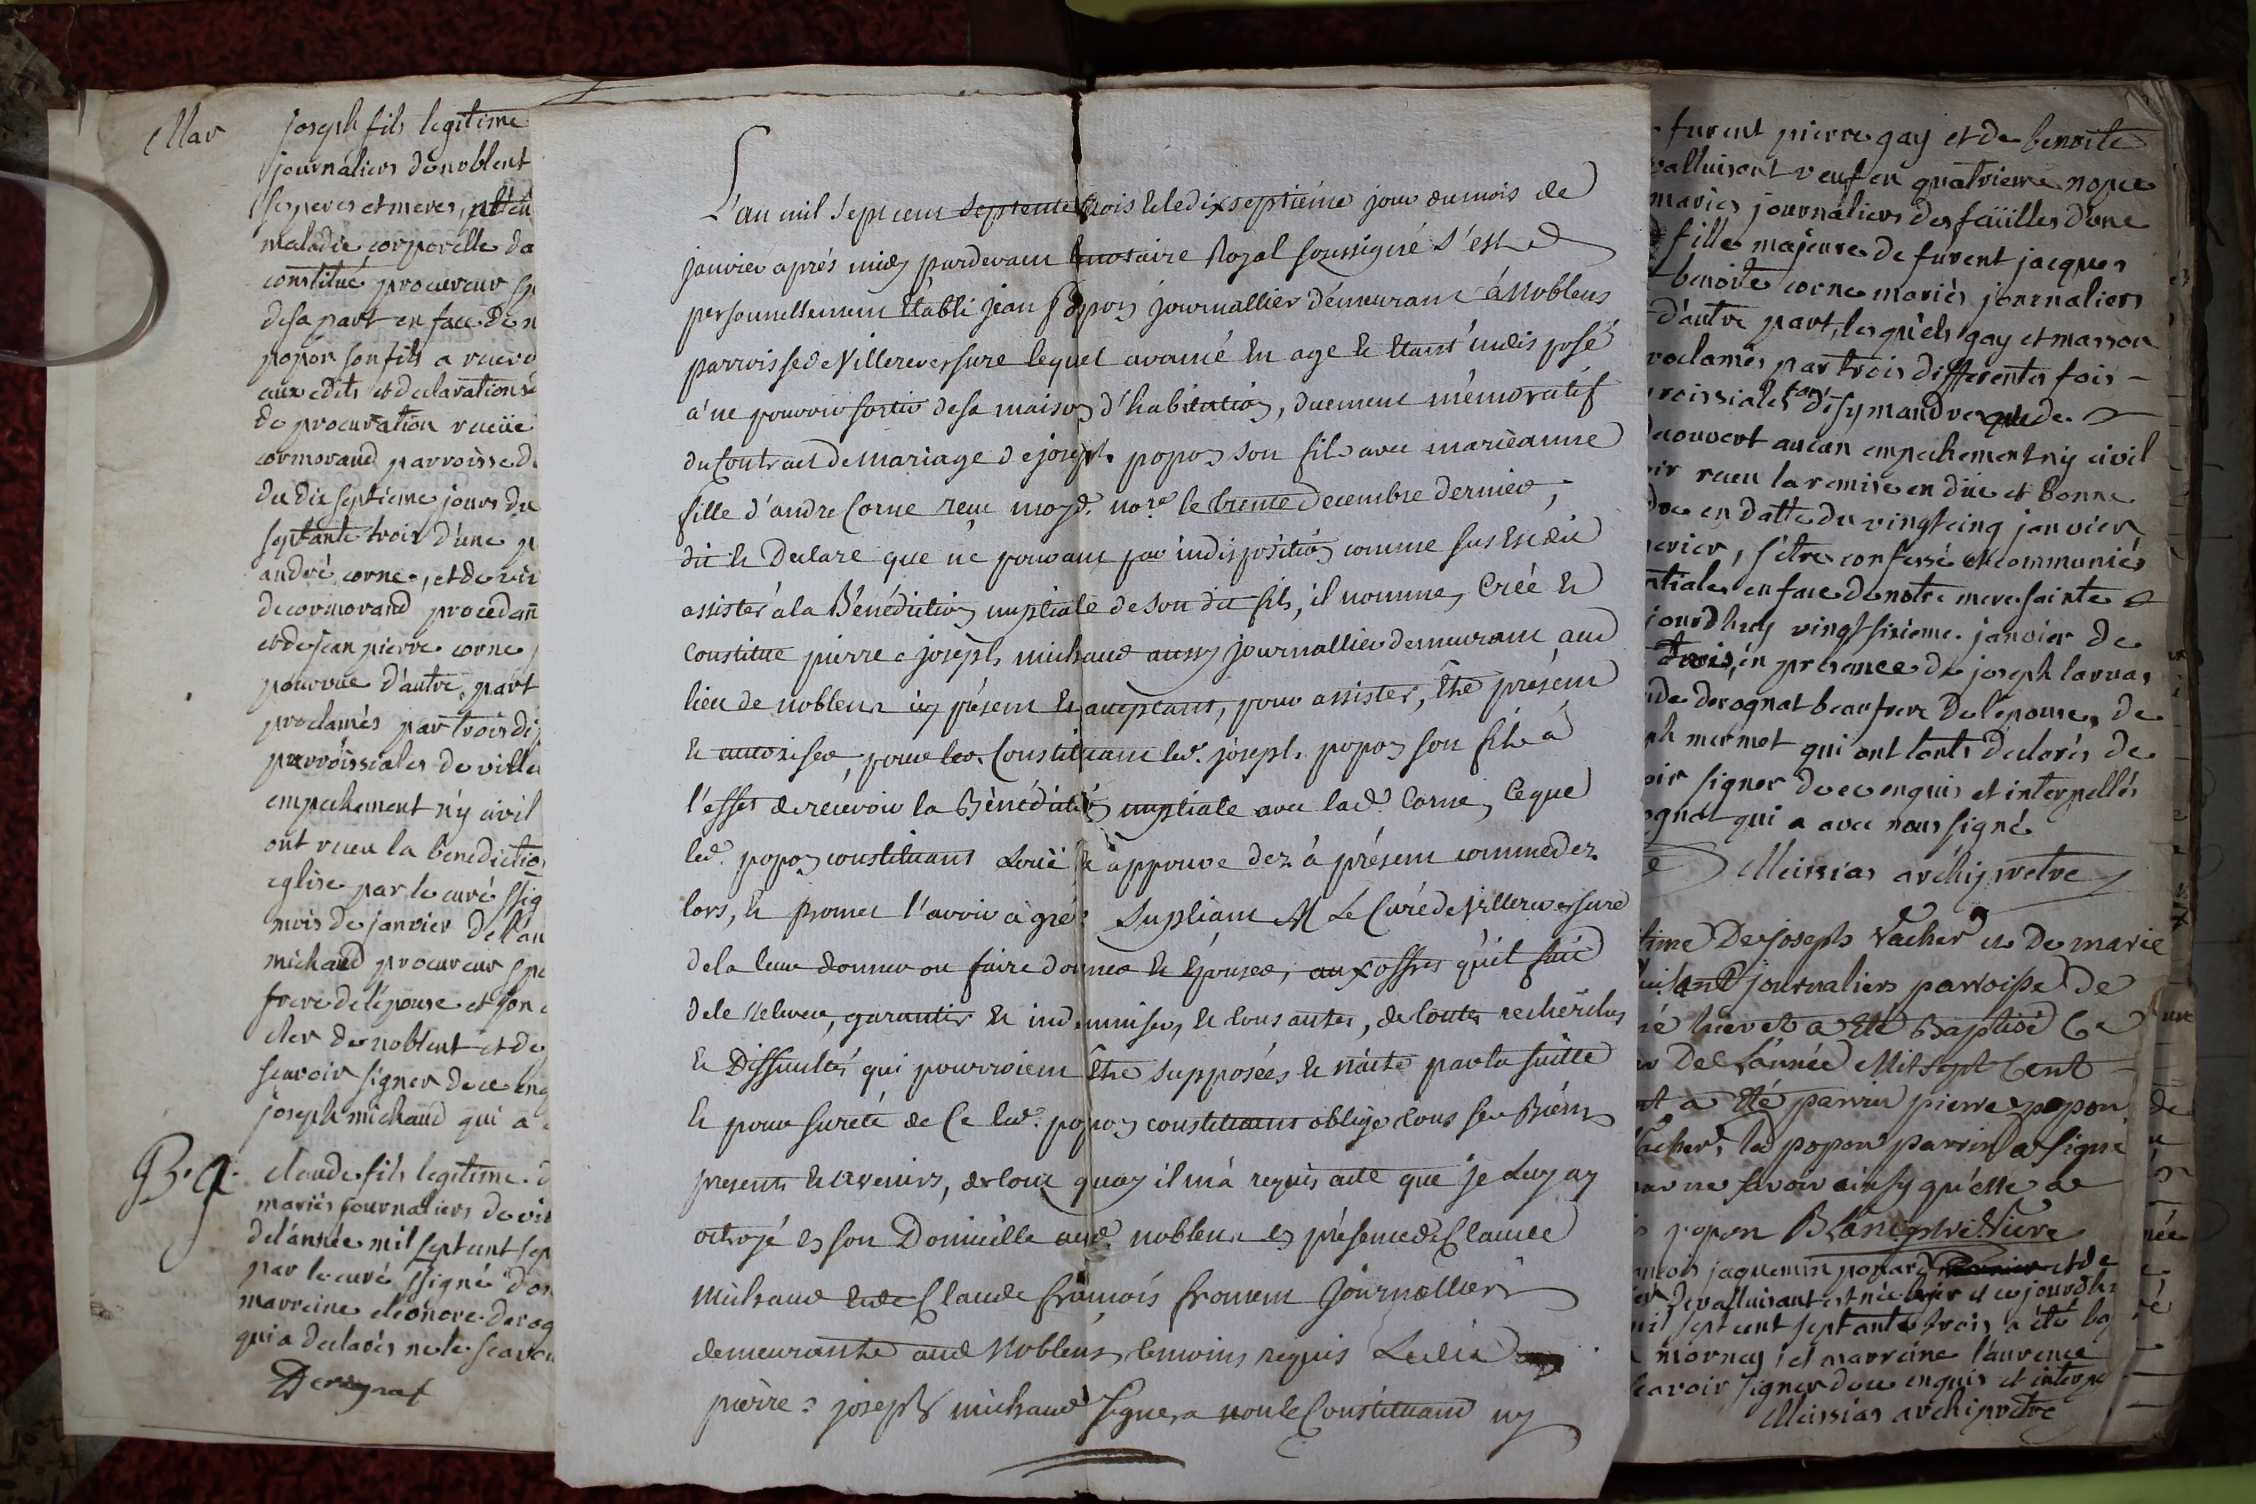 Mar
joseph fils legitime
journaliers de noblent
ses peres et meres, attendu
maladie corporelle da
constitué procureur sp
de sa part en face de n
popon son fils a receu
aux edits et declarations
de procuration recüe
cormorand parroisse d
du dix septieme jours du
septante trois d'une p
andré corne, et de
de cormorand procedan
et de jean pierre corne
pourvue d'autre part
proclamés par trois di
parroissiales de ville
empechement n'y civil
ont receu la benedictio
eglise par le curé ssig
mois de janvier de l'an
michaud procureur spe
frere de l'epouse et son
de noblent et de
scavoir signer de ce enq
joseph michaud qui a
B. q.
claude fils legitime d
mariés journaliers de
de l'année mil sept cent sep
par le curé ssigné
marreine eleonore derog
qui a declarés ne le scavoi
Derognat
L'an mil sept cent septente trois & le dix septiéme jour du mois de
janvier aprés midy pardevant le notaire Royal soussigné s'est
personnellement Etabli jean popon journallier démeurant à Noblens
parroisse de Villereversure lequel avancé En age & Etant indisposé
a ne pouvoir sortir de sa maison d'habitation, duement mémoratif
du Contract de mariage de joseph popon son fils avec marieanne
fille d'andre Corne reçu moyd. no.re le trente decembre dernier,
dit & Declare que ne pouvant par indisposition comme sus Est dit
assister à la Bénédiction nuptiale de son dit fils, il nomme, Créé &
Constitue pierre joseph michaud aussy journallier demeurant aud
lieu de noblens icy présent & acceptant, pour assister, Etre présent
& autoriser, pour led. Constituant led. joseph popon son fils à
l'effet de recevoir la Bénédiction nuptiale avec lad. Corne, Ce que
led. popon constituant Loüe & approuve dez à présent comme dez
lors, & promet l'avoir à gré: Supliant M Le Curé de Villereversure
de la leur donner ou faire donner & Epouser, aux offres qu'il fait
de le relever, garantir & indemniser, & tous autres, de toutes recherches
& Difficultés qui pourroient Etre supposées & naitre par la suitte
& pour sureté de Ce led. popon constituant oblige tous ses Biens
presents & avenirs, de tout quoy il m'a requis acte que je Luy ay
octroyé en son Domicille aud. noblens en présence de Claude
Michaud & de Claude François froment Journalliers
demeurants aud Noblens, temoins requis Ledit
pierre joseph michaud Signera non le Constituant ny
furent pierre gay et de benoite
valluisant veuf en quatrieme nopce
mariés journaliers des feüilles d'une
fille majeure de furent jacques
benoite corne mariés journaliers
d'autre part, lesquels gay et masson
roclamés par trois differentes fois
roissiales d'isymandre que de
decouvert aucun empechement n'y civil
ir receu la remise en düe et bonne
en datte du vingt cinq janvier
, s'être confessé et communiés
tiale en face de notre mere sainte
jourd'huy vingt sixieme janvier de
trois, en presance de joseph larvas
de derognat beaufrere de l'epouse, de
ph mermet qui ont touts declarés de
oir signer de ce enquis et interpellés
ognat qui a avec nous signé
Meissias archiprêtre
time De joseph Vacher et de marie
journaliers parroisse de
né hier et a Eté Baptisé Ce
De L'année Mil sept Cent
nt a Eté parrin pierre popon
Vacher, le popon parrin a signé
ne savoir ainsy qu'elle a
popon
jaquemin et de
devalluisant est née hier et ce jourdh
mil sept cent septante trois a été ba
mornay, et marreine laurence
scavoir signer de ce enquis et interpe
Meissias archiprêtre